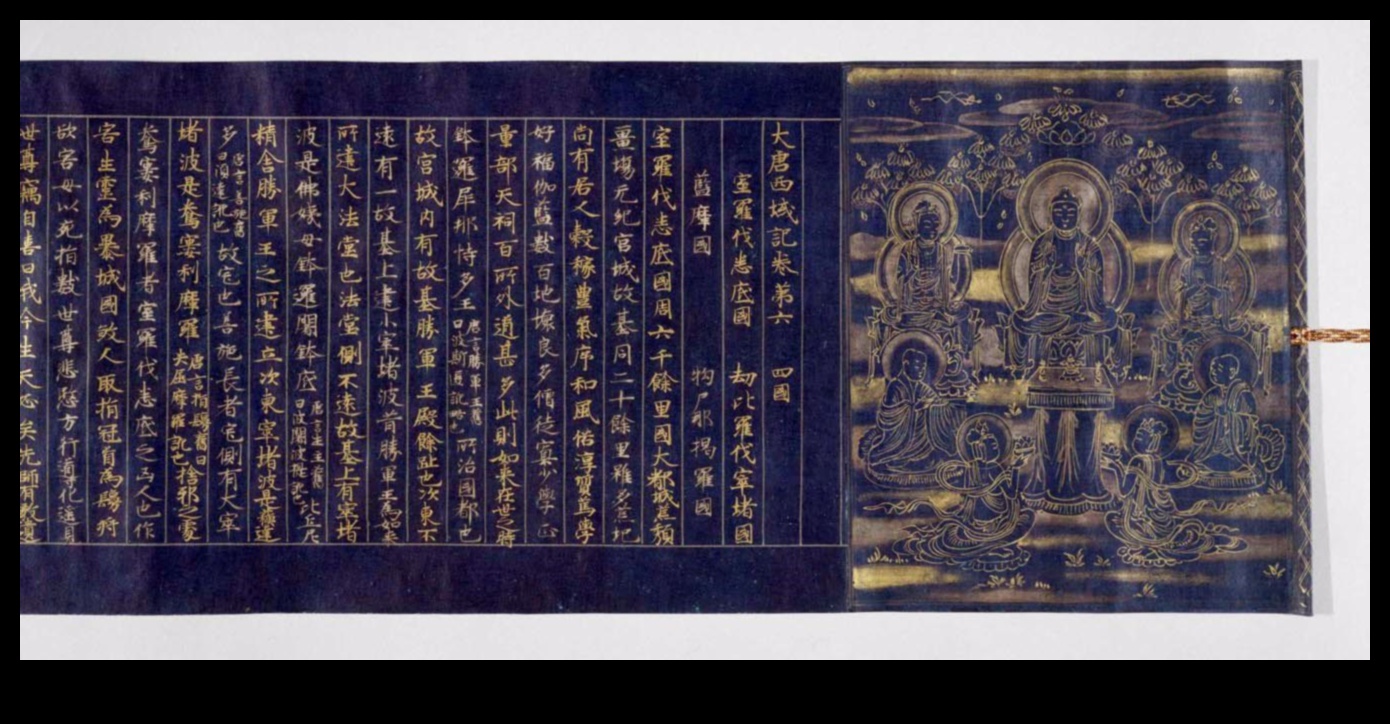 大唐西域記卷第六　四國
室羅伐悉底國　劫比羅伐窣堵國
藍摩國　拘尸那揭羅國
室羅伐悉底國周六千餘里國大都城荒頹
畺場无紀宮城故基同二十餘里雖多荒圮
尚有居人穀稼豐氣序和風俗淳質篤學
好福伽藍數百圮壞良多僧徒寡少學正
量部天祠百所外道甚多此則如來在世之時
鉢羅犀那恃多王唐言勝軍王舊曰波斯匿訛略也所治國都也
故宮城內有故基勝軍王殿餘趾也次東不
遠有一故基上建小窣堵波昔勝軍王為如來
所建大法堂也法堂側不遠故基上有窣堵
波是佛姨母鉢羅闍鉢底唐言生主舊曰波闍波提訛也比丘尼
精舍勝軍王之所建立次東窣堵波是蘇達
多唐言善施舊曰須達訛也故宅也善施長者宅側有大窣
堵波是鴦窶利摩羅唐言指鬘舊曰央崛摩羅訛也捨邪之處
鴦窶利摩羅者室羅伐悉底之凶人也作
害生靈為暴城國殺人取指冠首為鬘將
欲害母以充指數世尊悲愍方行導化遙見
世尊竊自喜曰我今生天必矣先師有教遺